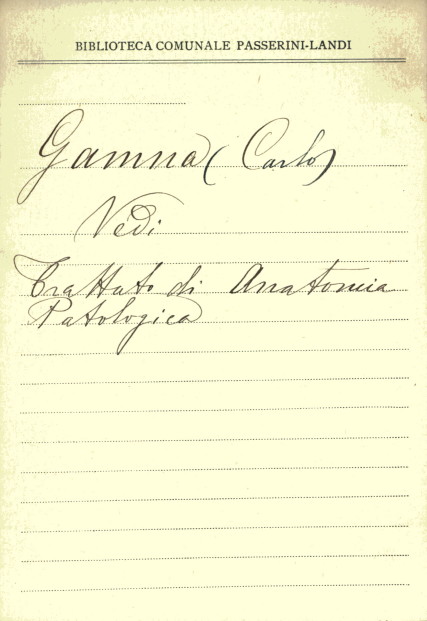 BIBLIOTECA COMUNALE PASSERINI-LANDI
Gamna (Carlo)
Vedi
Trattato di Anatomia
Patologica